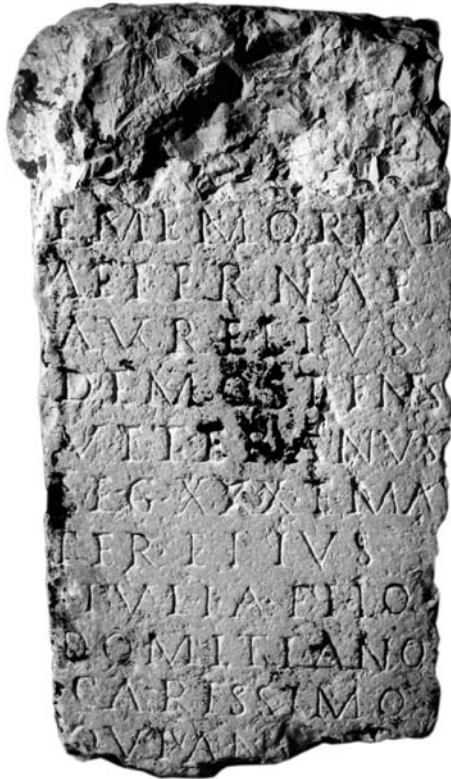 E MEMORIAE
AETERNAE
AVRELIVS
DEMOSTENS
VETERANVS
LEG XXX E MA
TER EIVS
FILIO
DOMITIANO
CARISSIMO
QVI AN